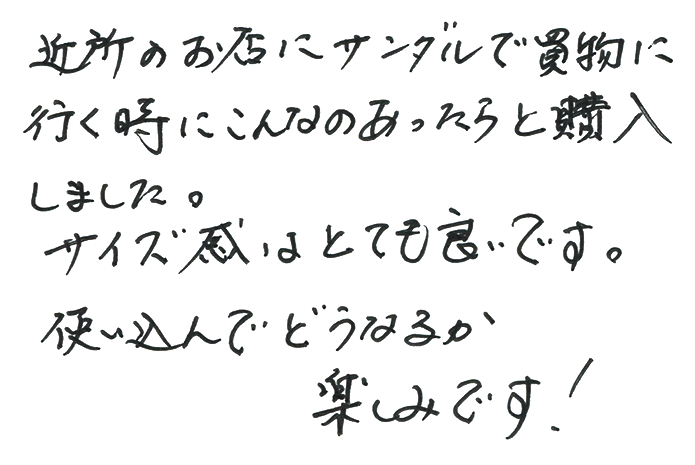 近所のお店にサンダルで買物に
行く時にこんなのあったらと購入
しました。
サイズ感はとても良いです。
使い込んでどうなるか
楽しみです！